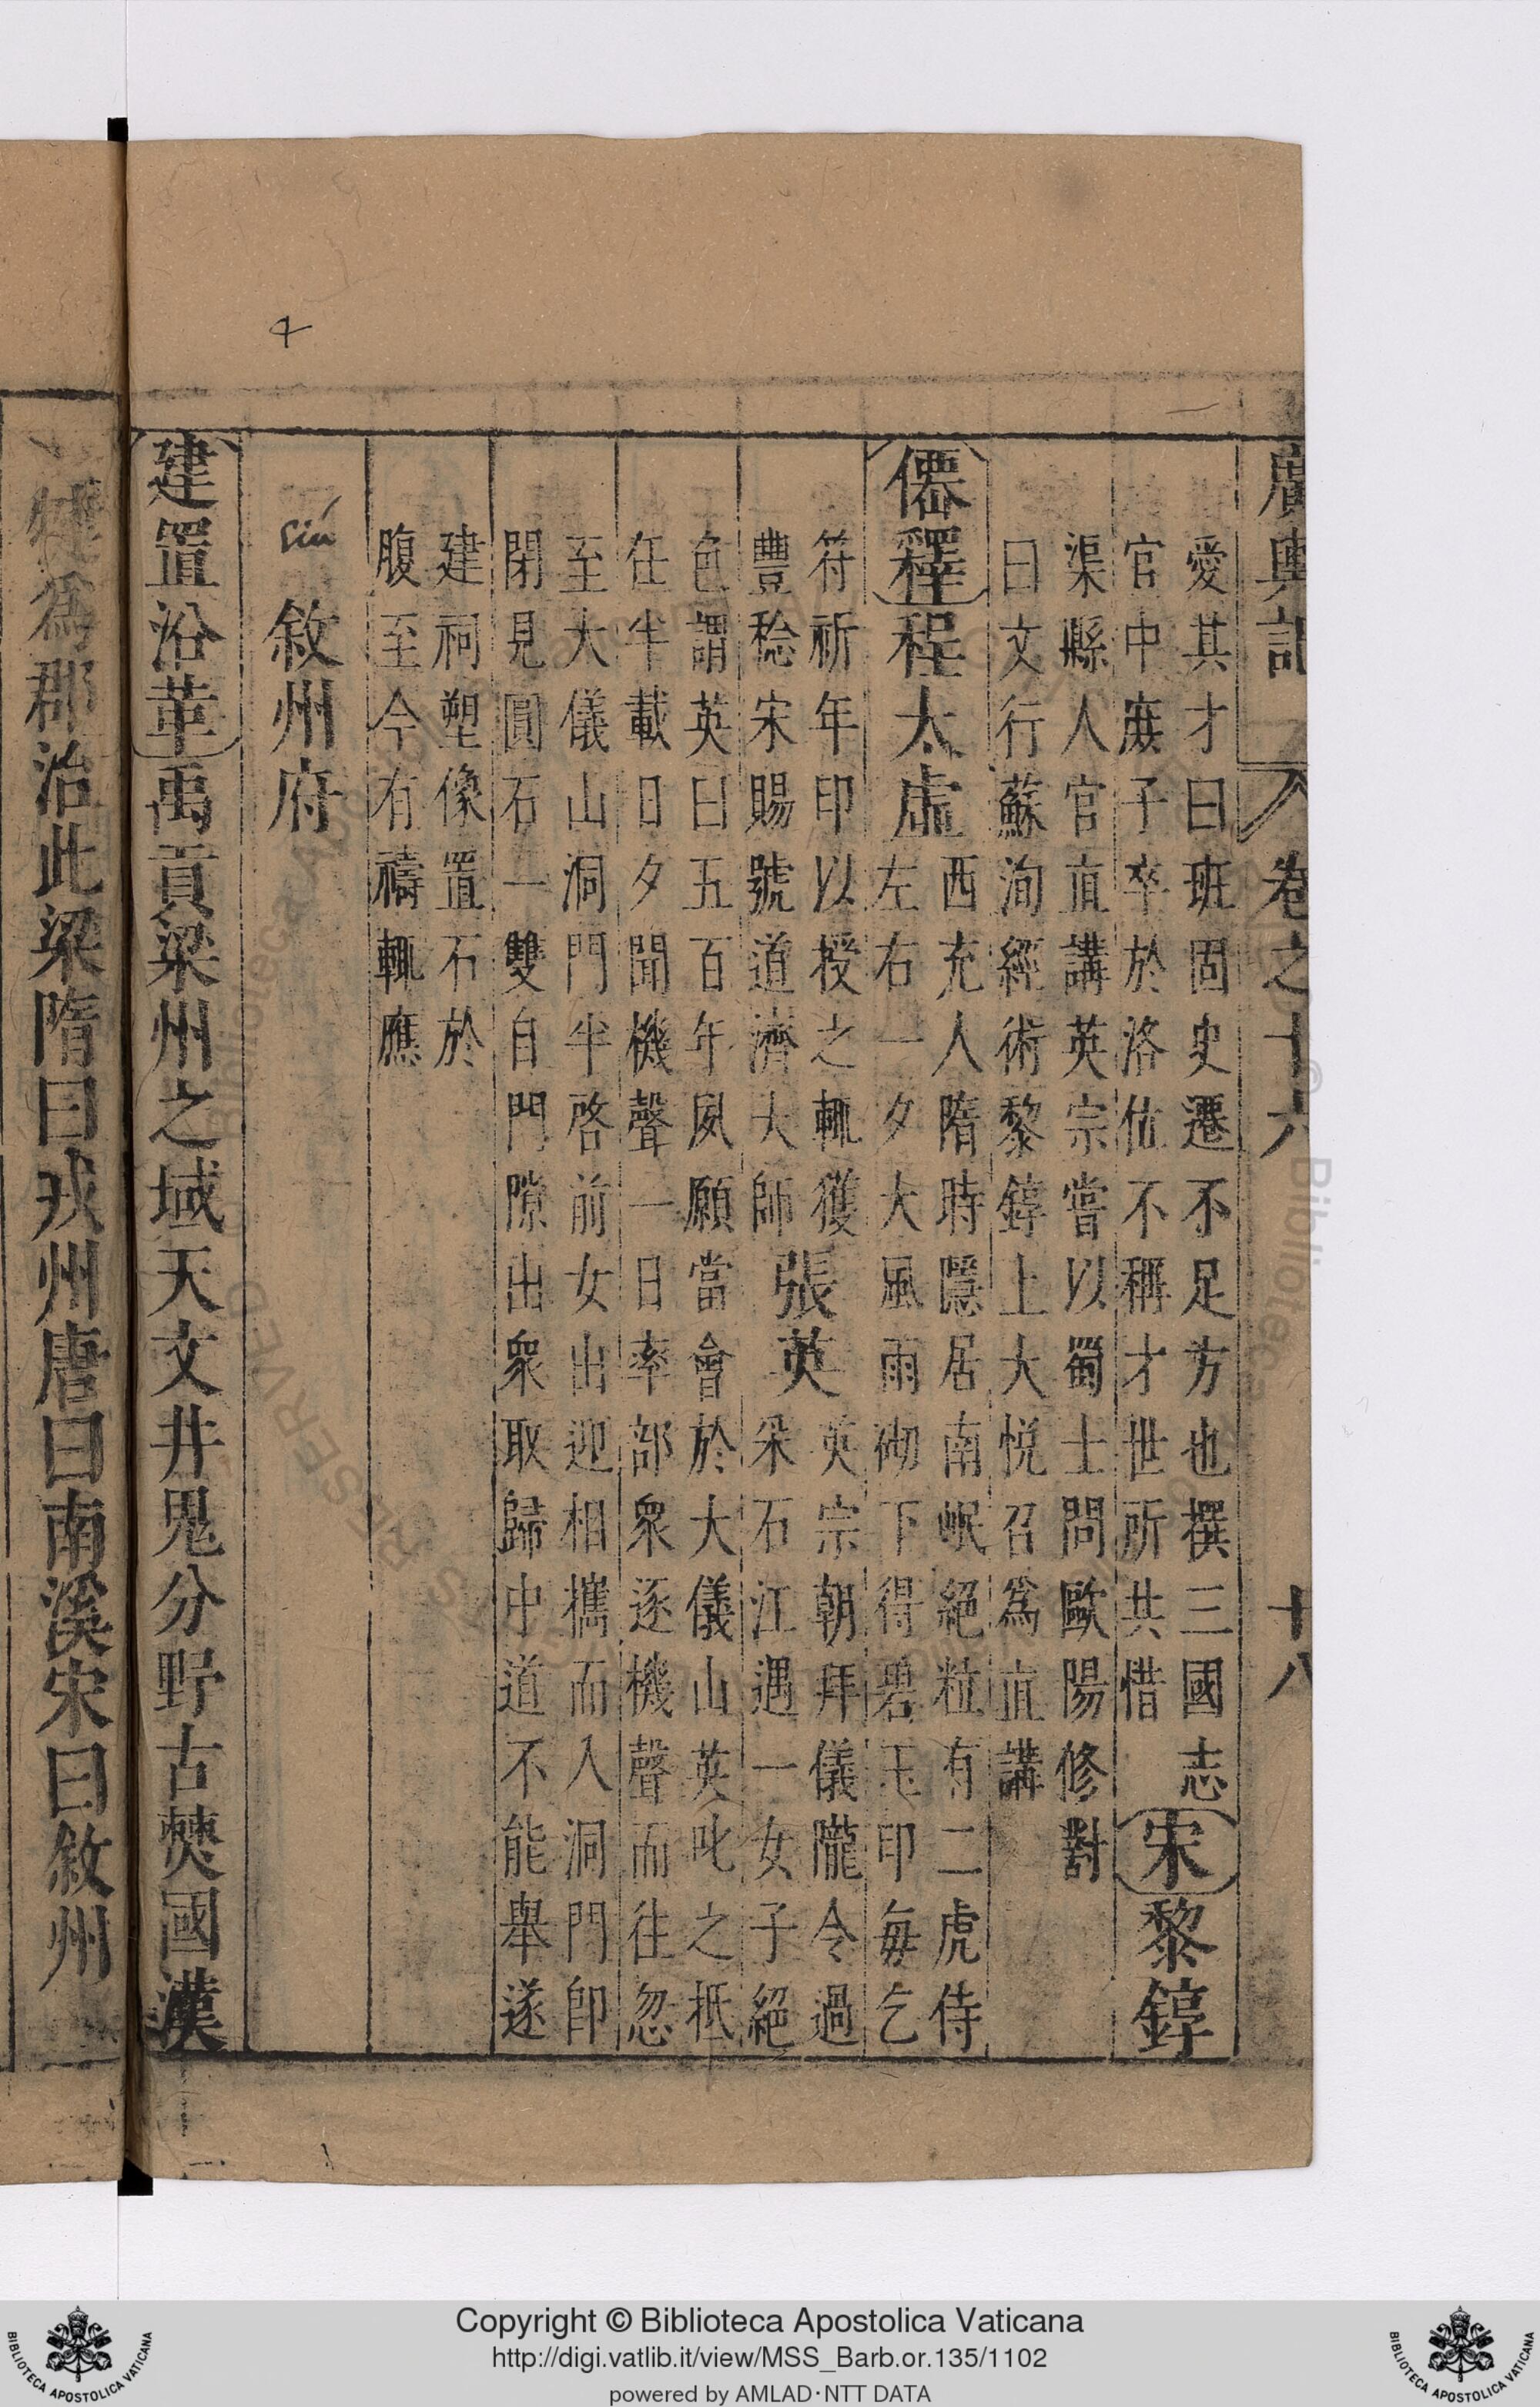 廣輿記 卷之十六 十八
愛其才曰班固史遷不足方也撰三國志
官中庶子卒於洛仕不稱才世所共惜
宋黎錞
渠縣人官直講英宗嘗以蜀士問歐陽修對
曰文行蘇洵經術黎錞上大悅召爲直講
僊釋程太虛
西充人隋時隱居南岷絕粒有二虎侍
左右一夕大風雨砌下得碧玉印每乞
符祈年印以授之輒獲
豐稔宋賜號道濟大師
張英
英宗朝拜儀隴令過
采石江遇一女子絕
色謂英曰五百年夙願當會於大儀山英叱之抵
任半載日夕聞機聲一日率部衆逐機聲而往忽
至大儀山洞門半啓前女出迎相攜而入洞門卽
閉見圓石一雙自門隙出衆取歸中道不能舉遂
建祠塑像置石於
腹至今有禱輒應
siú
敘州府
4
建置沿革禹貢梁州之域天文井鬼分野古僰國漢
犍爲郡治此梁隋曰戎州唐曰南溪宋曰敘州
Copyright © Biblioteca Apostolica Vaticana
http://digi.vatlib.it/view/MSS_Barb.or.135/1102
powered by AMLAD·NTT DATA
BIBLIOTECA APOSTOLICA VATICANA
BIBLIOTECA APOSTOLICA VATICANA